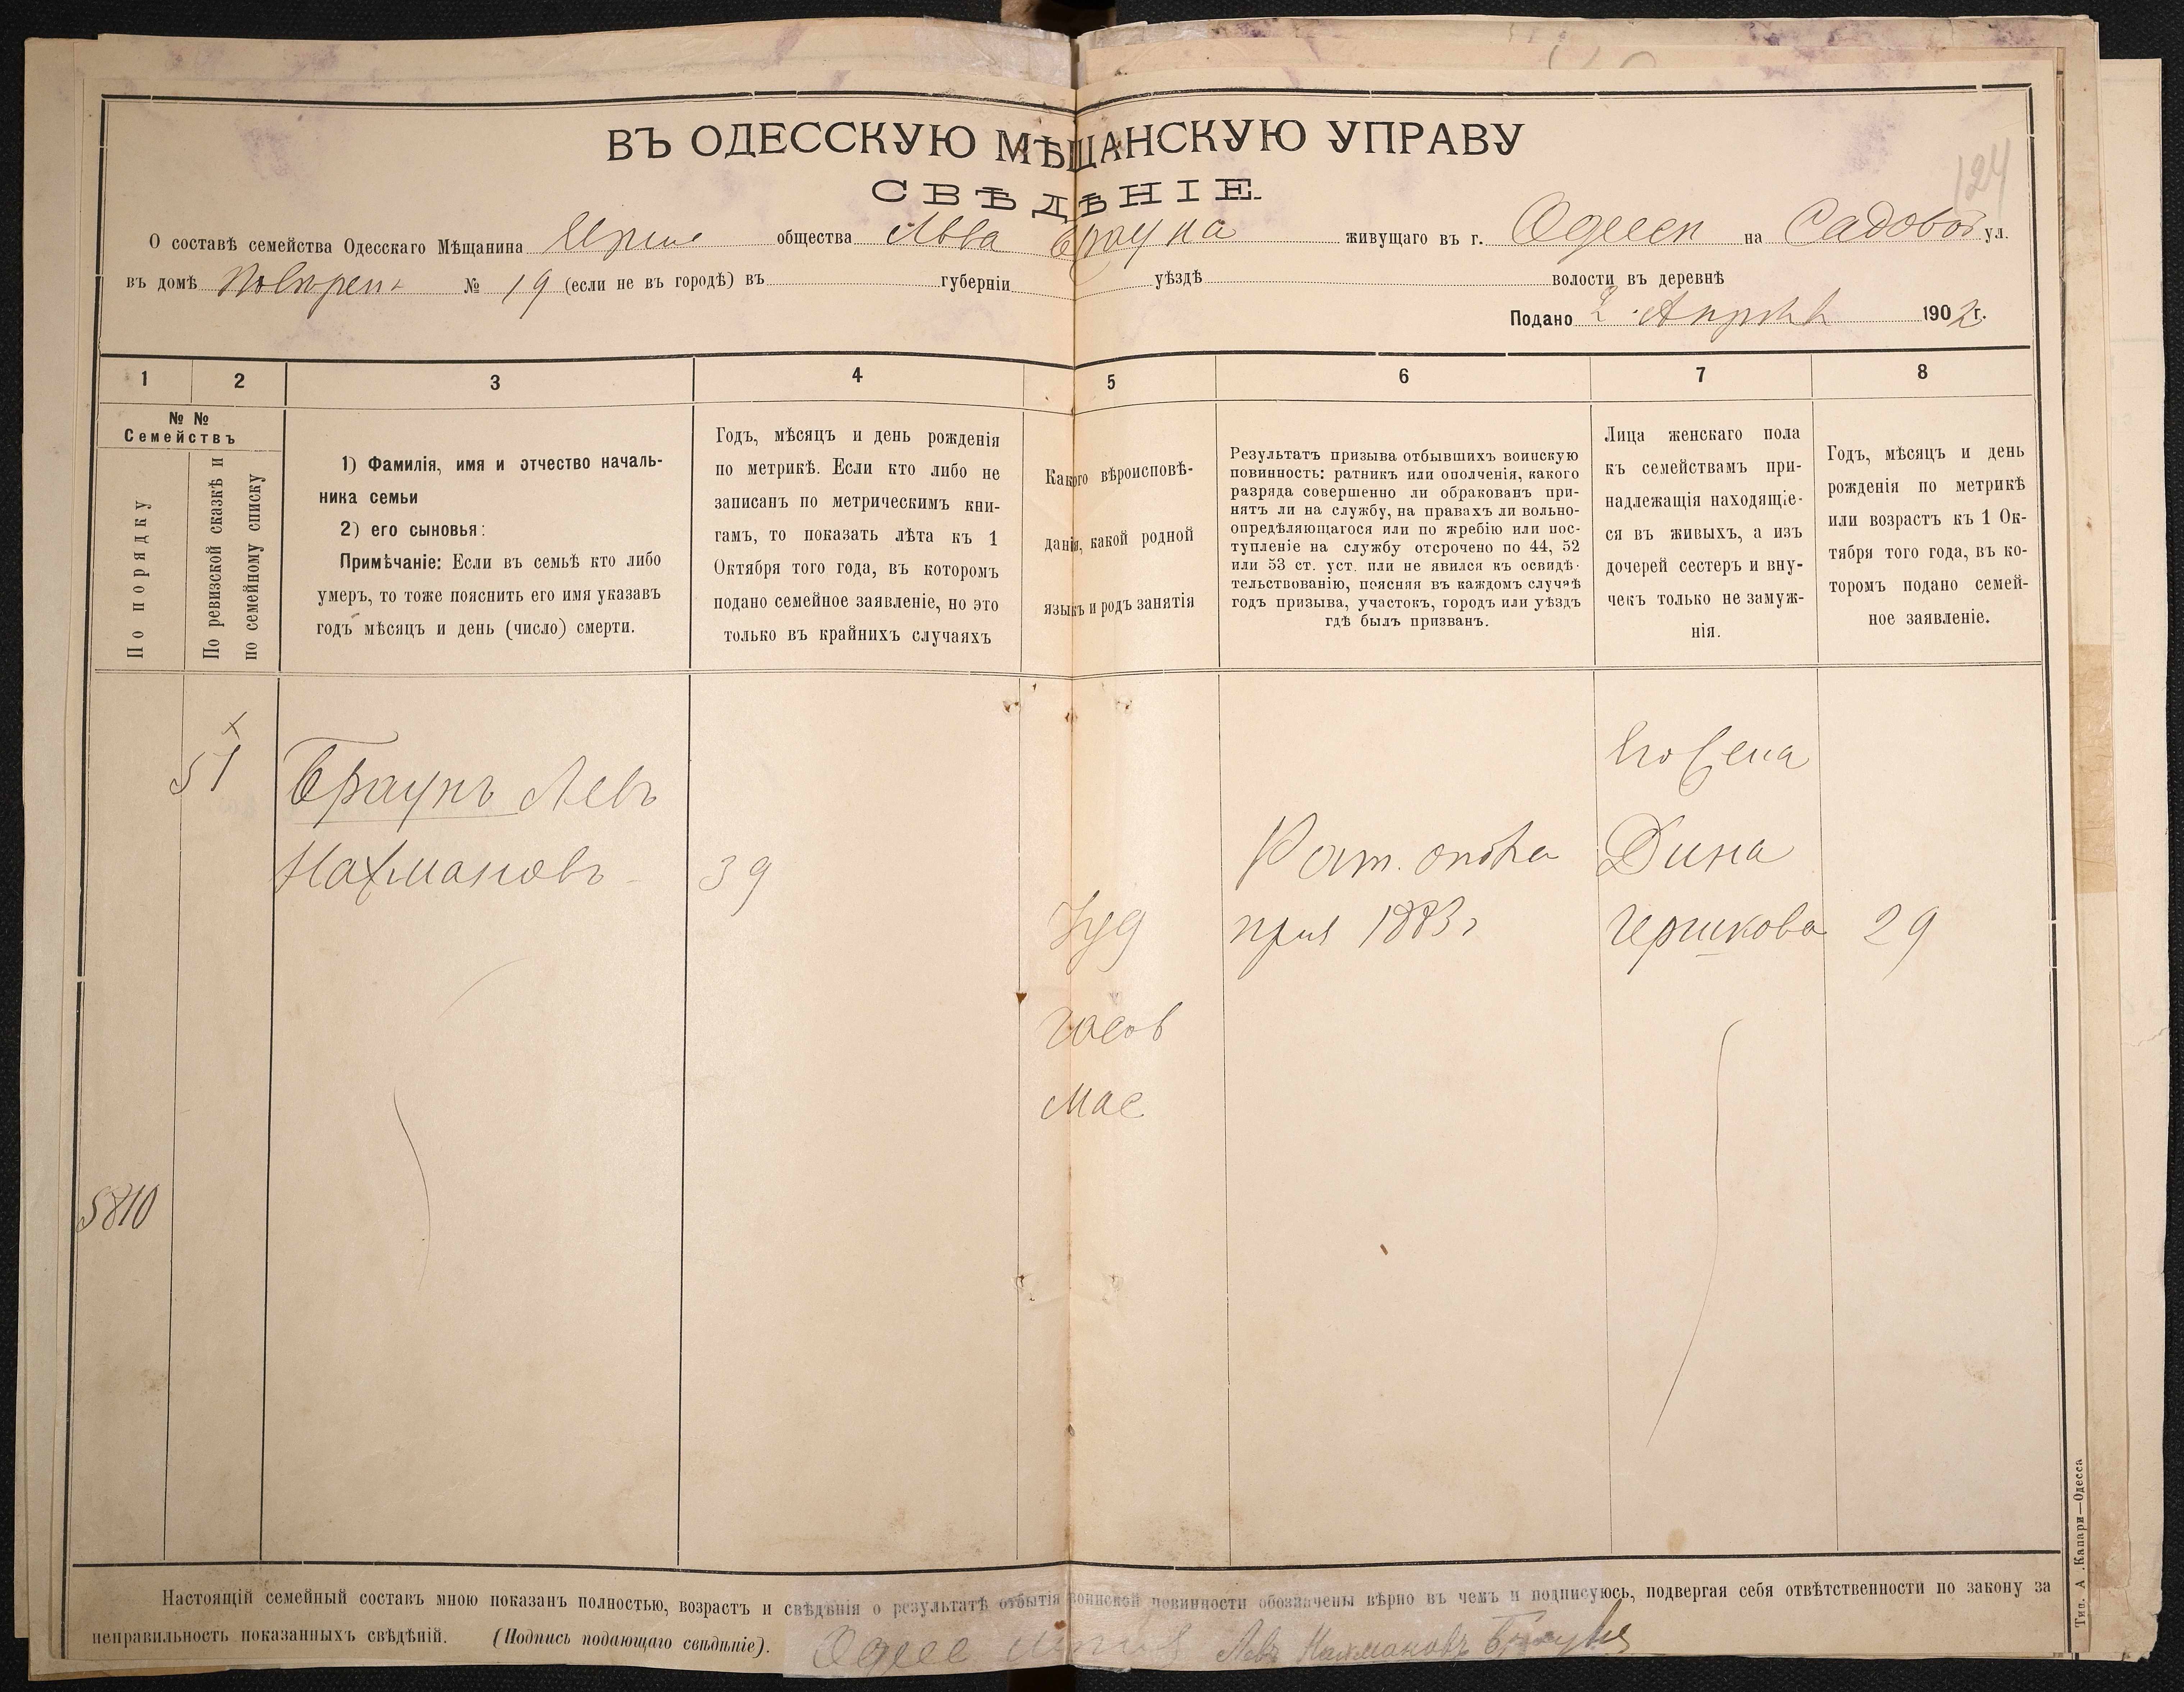 ВЪ ОДЕССКУЮ МѢЩАНСКУЮ УПРАВУ
124
СВѢДѢНІЕ.
О составѣ семейства Одесскаго Мѣщанина общества Льва Брауна живущаго въ г. Одесси на Садовой ул.
въ домѣ № 19 (если не въ городѣ) въ губерніи уѣздѣ волости въ деревнѣ
Подано 2 Апрѣля 1902 г.
1 2 3 4 5 6 7 8
№ №
Семействъ
По порядку
По ревизской сказкѣ и
по семейному списку
1) Фамилія, имя и отчество началь-
ника семьи
2) его сыновья:
Примѣчаніе: Если въ семьѣ кто либо
умеръ, то тоже пояснить его имя указавъ
годъ мѣсяцъ и день (число) смерти.
Годъ, мѣсяцъ и день рожденія
по метрикѣ. Если кто либо не
записанъ по метрическимъ кни-
гамъ, то показать лѣта къ 1
Октября того года, въ которомъ
подано семейное заявленіе, но это
только въ крайнихъ случаяхъ
Какого вѣроисповѣ-
данія, какой родной
языкъ и родъ занятія
Результатъ призыва отбывшихъ воинскую
повинность: ратникъ или ополченія, какого
разряда совершенно ли обракованъ при-
нятъ ли на службу, на правахъ ли вольно-
опредѣляющагося или по жребію или пос-
тупленіе на службу отсрочено по 44, 52
или 53 ст. уст. или не явился къ освидѣ-
тельствованію, поясняя въ каждомъ случаѣ
годъ призыва, участокъ, городъ или уѣздъ
гдѣ былъ призванъ.
Лица женскаго пола
къ семействамъ при-
надлежащія находящіе-
ся въ живыхъ, а изъ
дочерей сестеръ и вну-
чекъ только не замуж-
нія.
Годъ, мѣсяцъ и день
рожденія по метрикѣ
или возрастъ къ 1 Ок-
тября того года, въ ко-
торомъ подано семей-
ное заявленіе.
51
Браунъ Левъ
Нахмановъ 39
Іуд
Рат. опол
1883 г
Его жена
Дина
Гершкова 29
5810
Настоящій семейный составъ мною показанъ полностью, возрастъ и свѣдѣнія о результатѣ отбытія воинской повинности обозначены вѣрно въ чемъ и подписуюсь, подвергая себя отвѣтственности по закону за
неправильность показанныхъ свѣдѣній. (Подпись подающаго свѣдѣніе). Левъ Нахмановъ Браунъ
Тип. А. Капари—Одесса